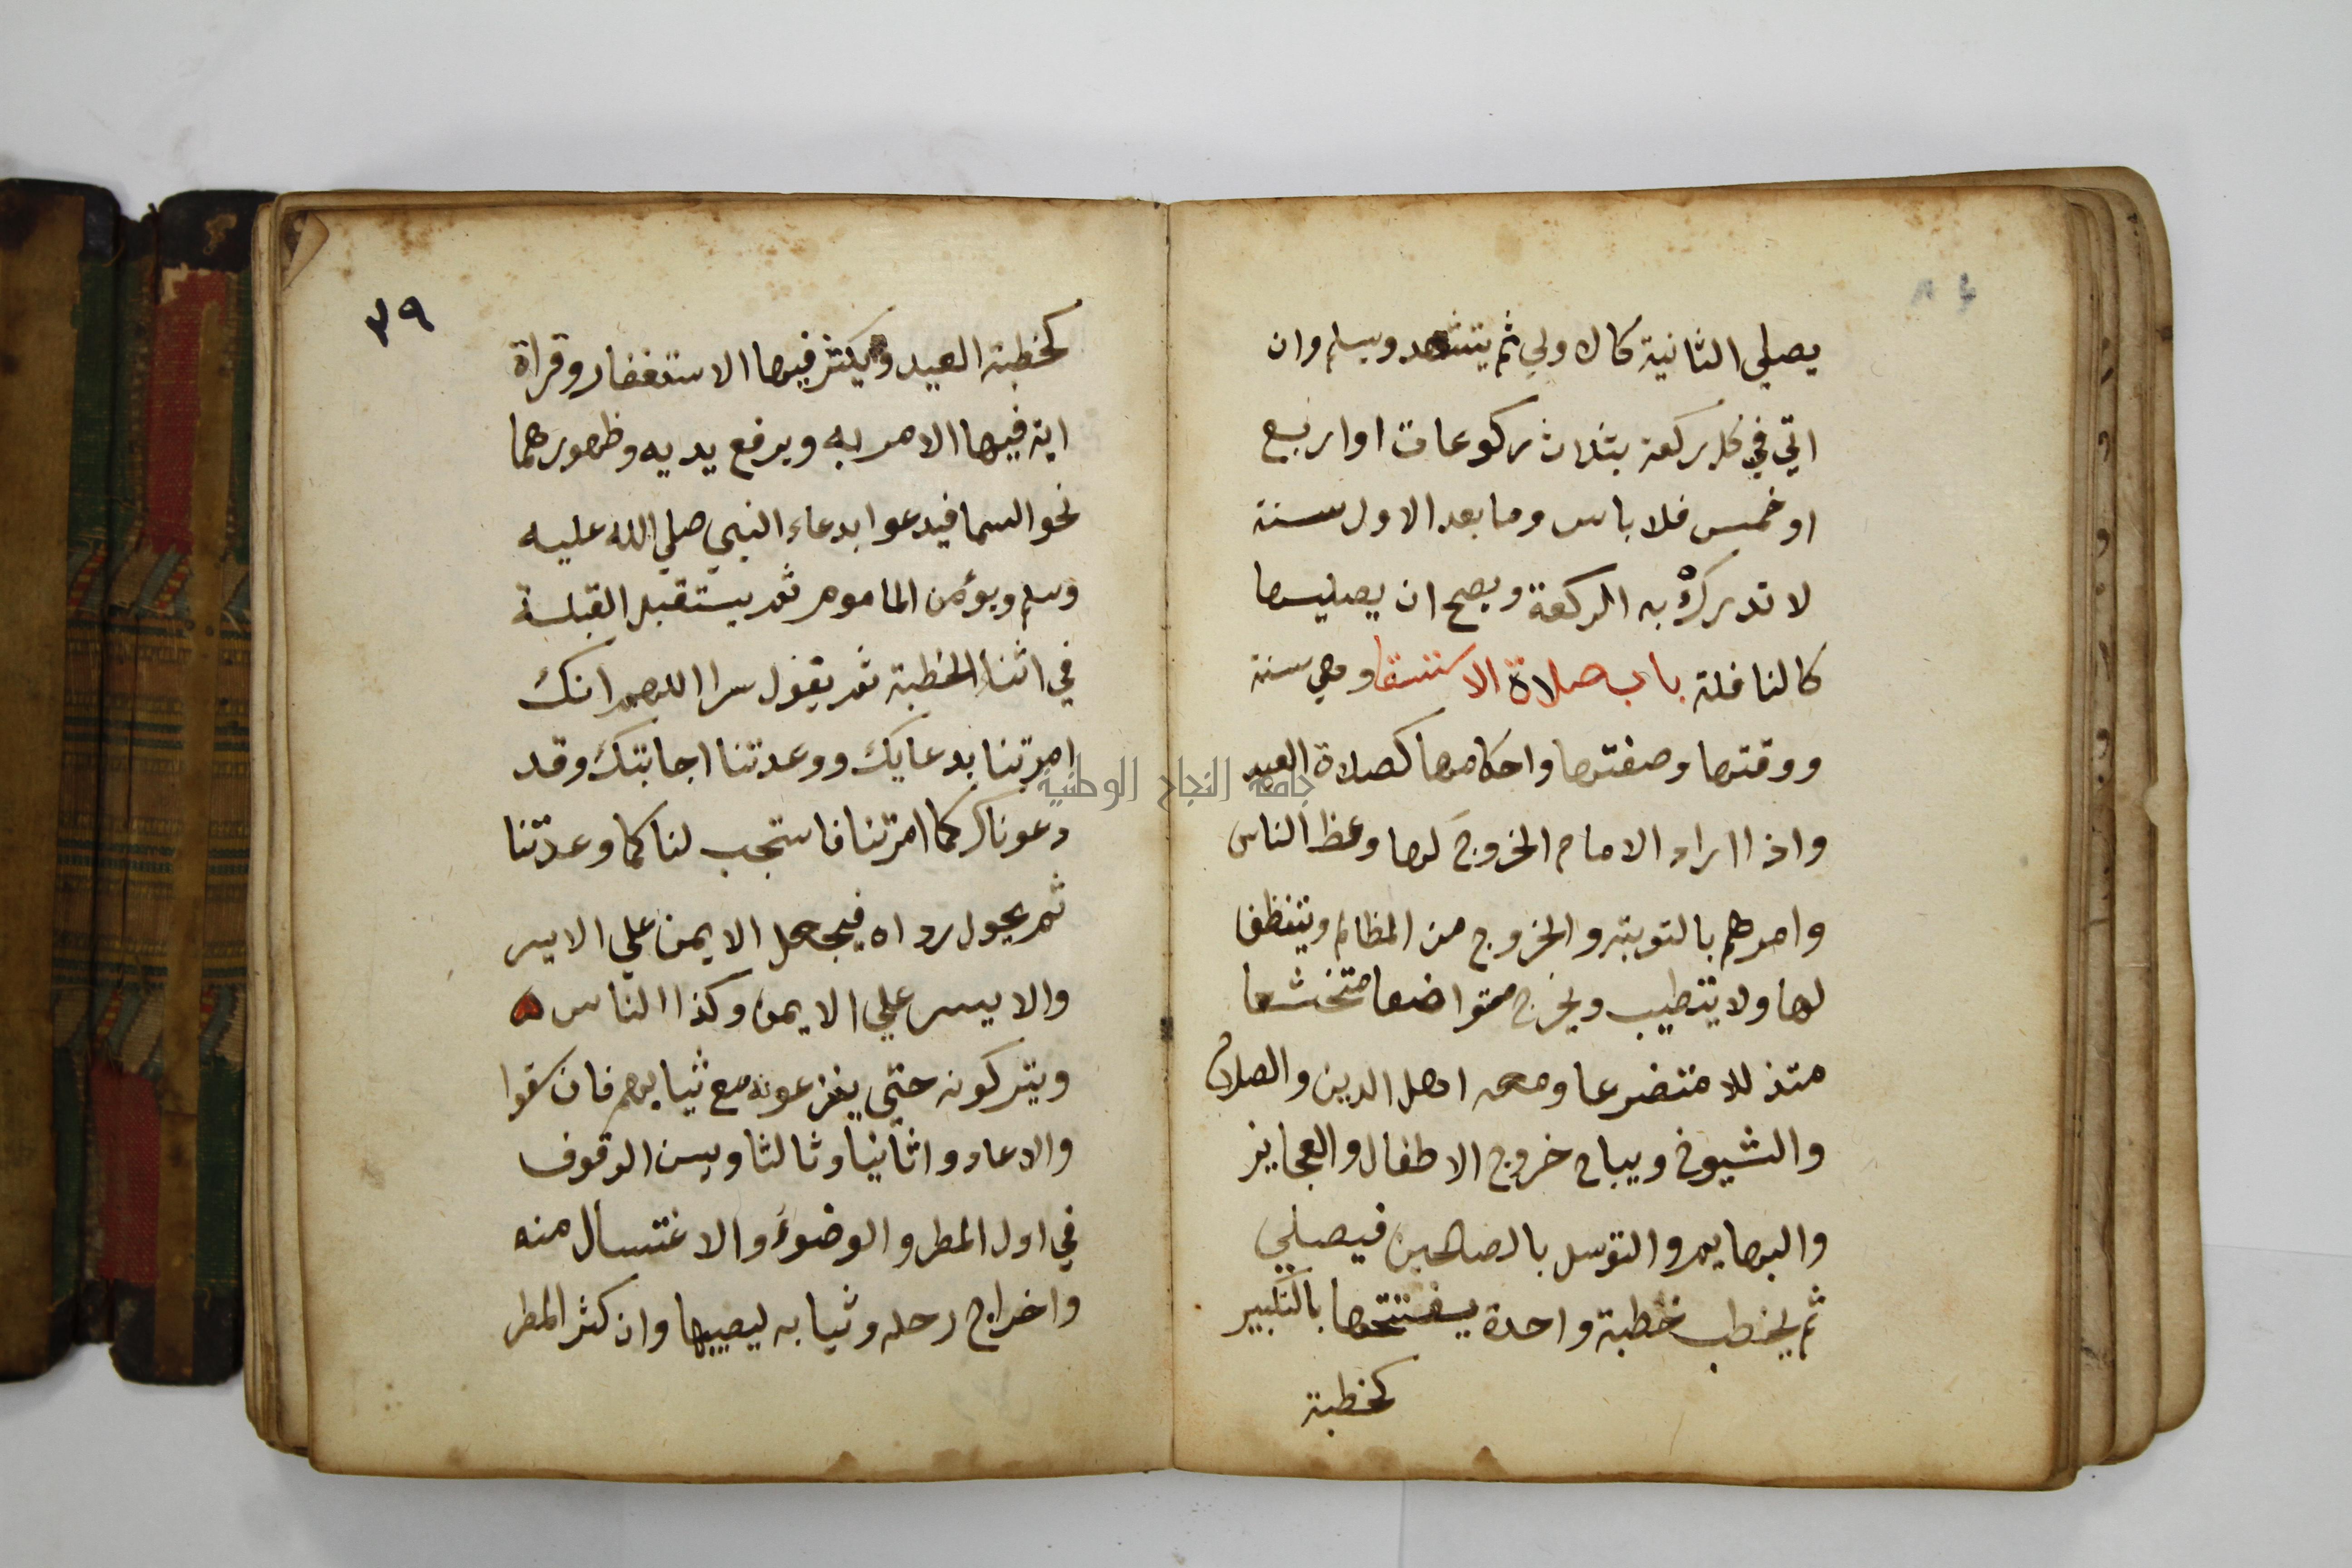 يصلي الثانية كالاولي ثم يتشهد ويسلم وان
اتي في كل ركعة بثلاث ركوعات او اربع
او خمس فلا باس وما بعد الاول سنة
لا تدرك به الركعة ويصح ان يصليها
كالنافلة باب صلاة الاستسقا وهي سنة
ووقتها وصفتها واحكامها كصلاة العيد
واذا اراد الامام الخروج لها وعظ الناس
وامرهم بالتوبة والخروج من المظالم ويتنظف
لها ولا يتطيب ويخرج متواضعا متخشعا
متذللا متضرعا ومعه اهل الدين والصلاح
والشيوخ ويباح خروج الاطفال والعجايز
والبهايم والتوسل بالصالحين فيصلي
ثم يخطب خطبة واحدة يفتتحها بالتكبير
كخطبة
٣٩
كخطبة العيد ويكثر فيها الاستغفار وقراة
اية فيها الامر به ويرفع يديه وظهورهما
نحو السما فيدعوا بدعاء النبي صلي الله عليه
وسلم ويؤمن الماموم ثم يستقبل القبلة
في اثنا الخطبة ثم يقول سرا اللهم انك
امرتنا بدعايك ووعدتنا اجابتك وقد
دعوناك كما امرتنا فاستجب لنا كما وعدتنا
ثم يحول رداه فيجعل الايمن علي الايسر
والايسر علي الايمن وكذا الناس ه
ويتركونه حتي ينزعونه مع ثيابهم فان سقوا
والا عادوا ثانيا وثالثا ويسن الوقوف
في اول المطر والوضوء والاغتسال منه
واخراج رحله وثيابه ليصيبها وان كثر المطر
جامعة النجاح الوطنية